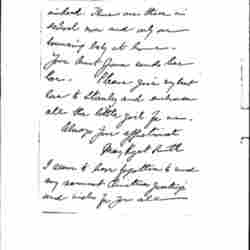 indeed. There are three in
school now and only one
baby at home.
Your Aunt Jennie sends her
love. Please give my best
love to Stanley and
all the little girls for me.
Always your affectionate
I seem to have forgotten to send
my Christmas greetings
and wishes for you all